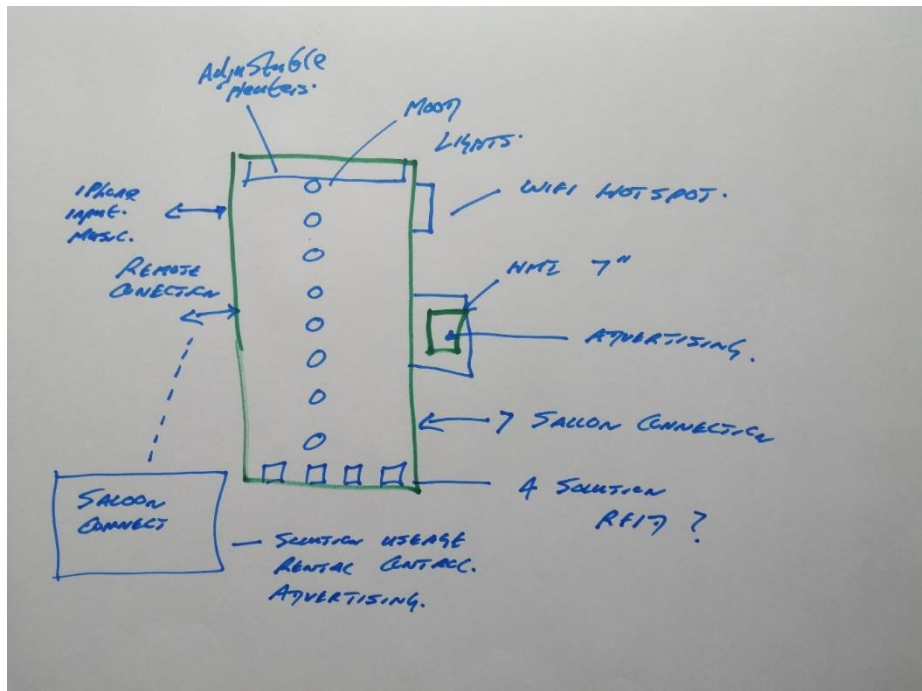 Adjustable
Heaters.
MOOD
LIGHTS.
IPHONE
INPUT.
MUSIC.
WIFI HOTSPOT.
REMOTE
CONECTION
HMI 7"
ADVERTISING.
SALLON CONNECTION
4 SOLUTION
RFID ?
SALOON
CONNECT
SOLUTION USEAGE
RENTAL CONTROL.
ADVERTISING.